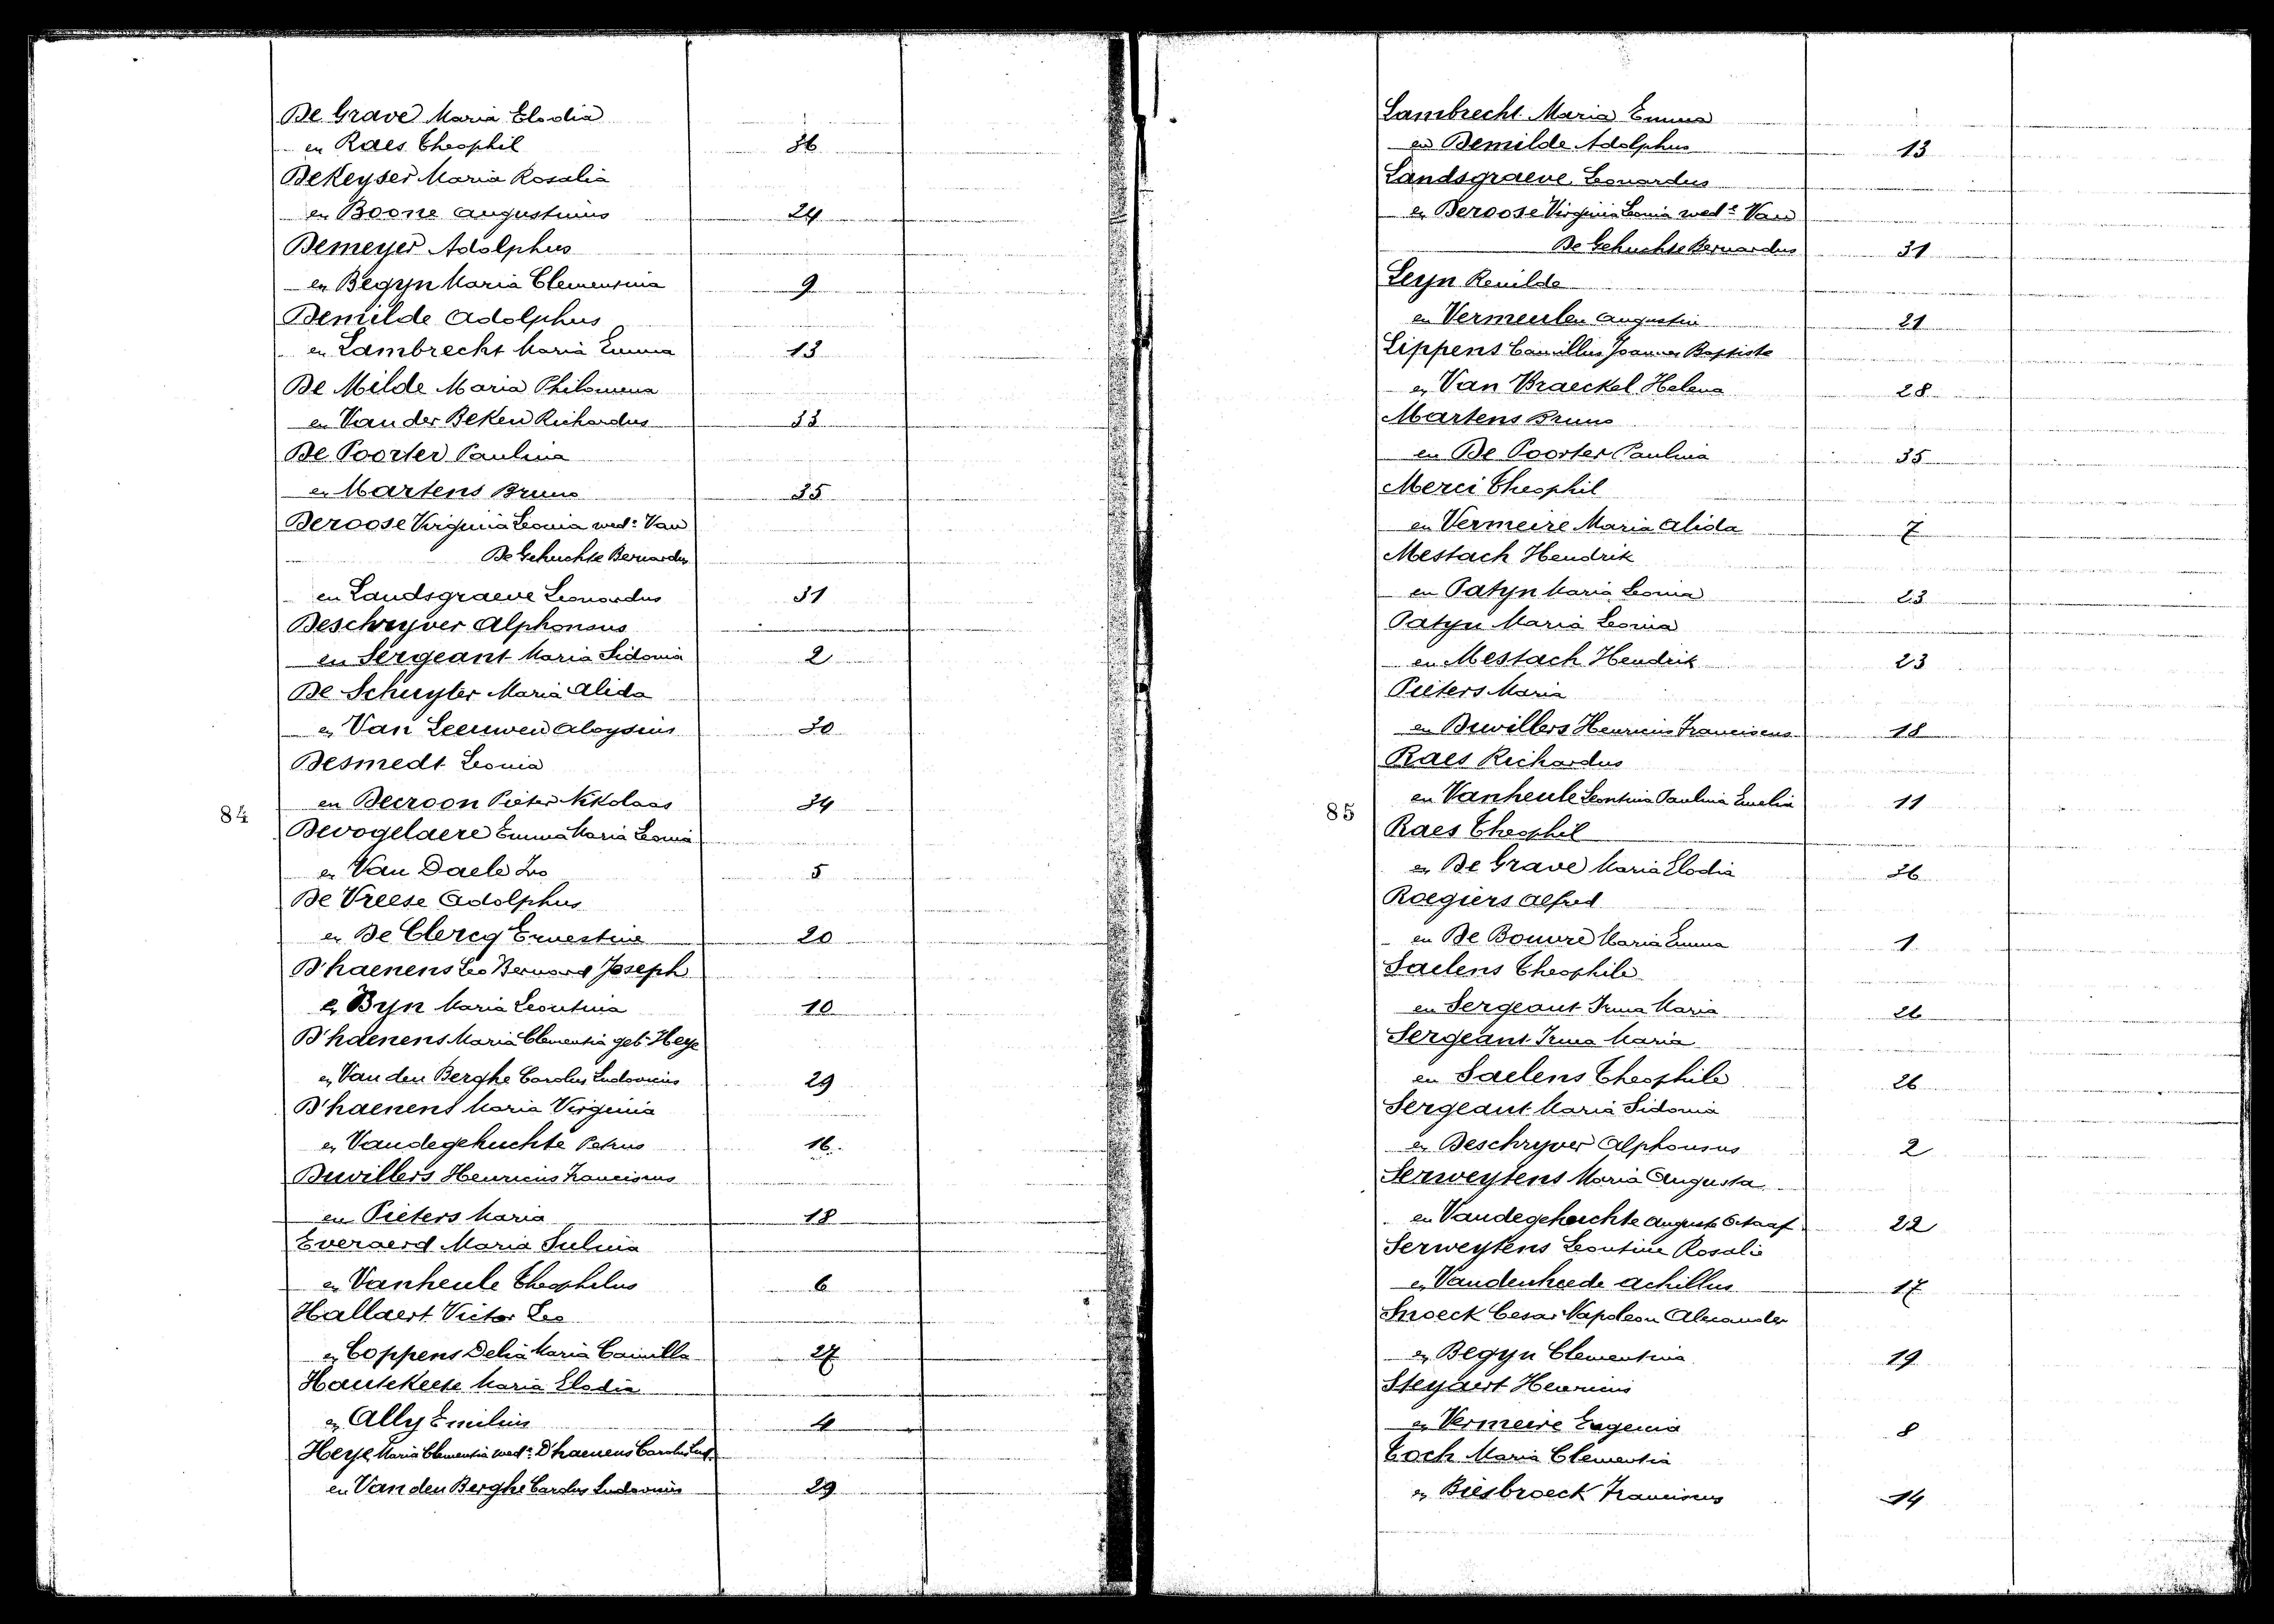 De Grave Maria Elodia
en Raes Theophil 36
DeKeyser Maria Rosalia
en Boone Augustinus 24
Demeyer Adolphus
en Begyn Maria Clementina 9
Demilde Adolphus
en Lambrecht Maria Emma 13
De Milde Maria Philomena
en Van der Beken Richardus 33
De Poorter Paulina
en Martens Bruno 35
Deroose Virginia Leonia wede Van
De Gehuchte Bernardus
en Landsgraeve Leonardus 31
Deschryver Alphonsus
en Sergeant Maria Sidonia 2
De Schuyter Maria Alida
en Van Leeuwen Aloysius 30
Desmedt Leonia
en Decroon Pieter Nikolaas 34
84
Devogelaere Emma Maria Leonia
en Van Daele Ivo 5
De Vreese Adolphus
en De Clercq Ernestine 20
D'haenens Leo Bernard Joseph
en Byn Maria Leontina 10
D'haenens Maria Clementia geb. Heye
en Van den Berghe Carolus Ludovicus 29
D'haenens Maria Virginia
en Vandegehuchte Petrus 16
Duvillers Henricus Franciscus
en Pieters Maria 18
Everaerd Maria Sulvia
en Vanheule Theophilus 6
Hallaert Victor Leo
en Coppens Delia Maria Camilla 27
Hautekeete Maria Elodia
en Ally Emilius 4
Heye Maria Clementia wede D'haenens Carolus Lud.
en Van den Berghe Carolus Ludovicus 29
Lambrecht Maria Emma
en Demilde Adolphus 13
Landsgraeve Leonardus
en Deroose Virginia Leonia wede Van
De Gehuchte Bernardus 31
Leyn Renilde
en Vermeulen Augustin 21
Lippens Camillus Joannes Baptiste
en Van Braeckel Helena 28
Martens Bruno
en De Poorter Paulina 35
Merci Theophil
en Vermeire Maria Alida 7
Mestach Hendrik
en Patyn Maria Leonia 23
Patyn Maria Leonia
en Mestach Hendrik 23
Pieters Maria
en Duvillers Henricus Franciscus 18
Raes Richardus
en Vanheule Leontina Paulina Emelia 11
85
Raes Theophil
en De Grave Maria Elodia 36
Roegiers Alfred
en De Bouvre Maria Emma 1
Saelens Theophile
en Sergeant Irma Maria 26
Sergeant Irma Maria
en Saelens Theophile 26
Sergeant Maria Sidonia
en Deschryver Alphonsus 2
Serweytens Maria Augusta
en Vandegehuchte August Octaaf 22
Serweytens Leontine Rosalie
en Vandenheede Achillus 17
Snoeck Cesar Napoleon Alexander
en Begyn Clementina 19
Steyaert Henricus
en Vermeire Eugenia 8
Toch Maria Clementia
en Biesbroeck Franciscus 14